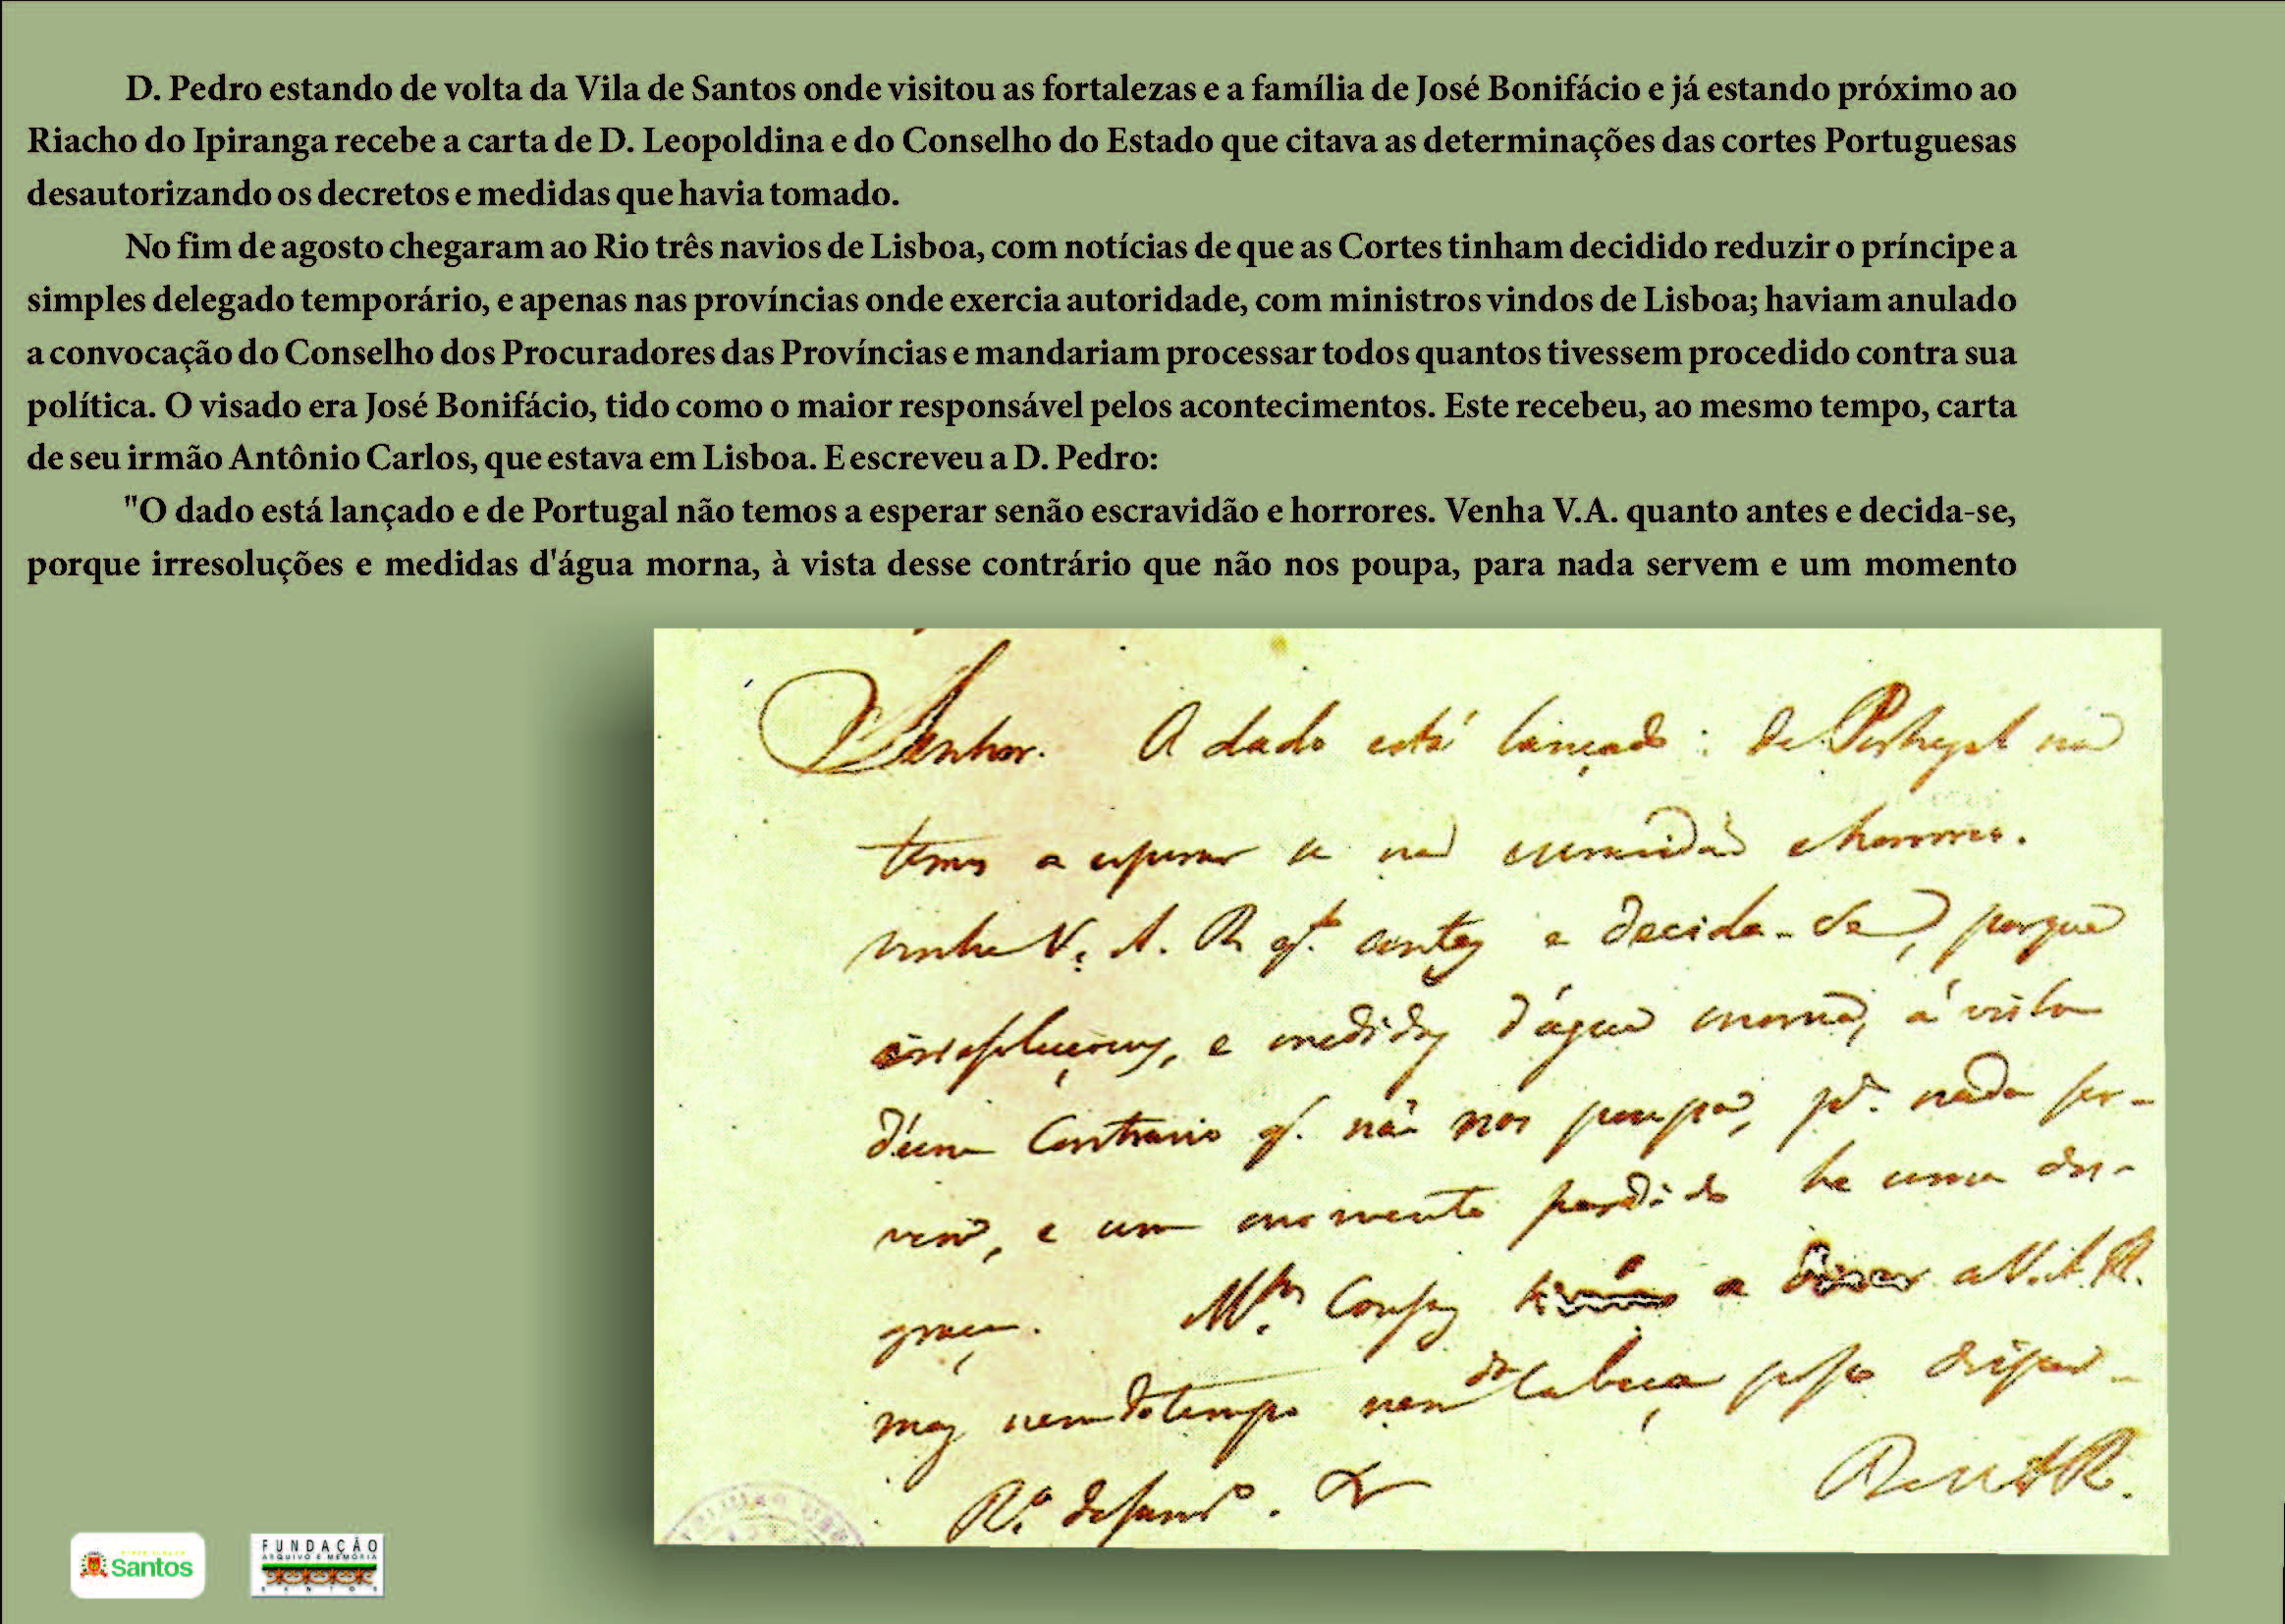 D. Pedro estando de volta da Vila de Santos onde visitou as fortalezas e a família de José Bonifácio e já estando próximo ao
Riacho do Ipiranga recebe a carta de D. Leopoldina e do Conselho do Estado que citava as determinações das cortes Portuguesas
desautorizando os decretos e medidas que havia tomado.
No fim de agosto chegaram ao Rio três navios de Lisboa, com notícias de que as Cortes tinham decidido reduzir o príncipe a
simples delegado temporário, e apenas nas províncias onde exercia autoridade, com ministros vindos de Lisboa; haviam anulado
a convocação do Conselho dos Procuradores das Províncias e mandariam processar todos quantos tivessem procedido contra sua
política. O visado era José Bonifácio, tido como o maior responsável pelos acontecimentos. Este recebeu, ao mesmo tempo, carta
de seu irmão Antônio Carlos, que estava em Lisboa. E escreveu a D. Pedro:
"O dado está lançado e de Portugal não temos a esperar senão escravidão e horrores. Venha V.A. quanto antes e decida-se,
porque irresoluções e medidas d'água morna, à vista desse contrário que não nos poupa, para nada servem e um momento
Senhor. O dado está lançado: de Portugal não
temos a esperar se não escravidão e horrores.
Venha V. A. R. q.to antes e decida-se, porque
irresoluçoens, e medidas d'água morna, á vista
d'um Contrario q. não nos poupa, pa. nada ser-
vem, e um momento perdido he uma des-
graça. M.tas Cousas a dizer a V. A. R.
mas nem do tempo nem da Cabeça posso dispor
Santos
FUNDAÇÃO
ARQUIVO E MEMÓRIA
SANTOS